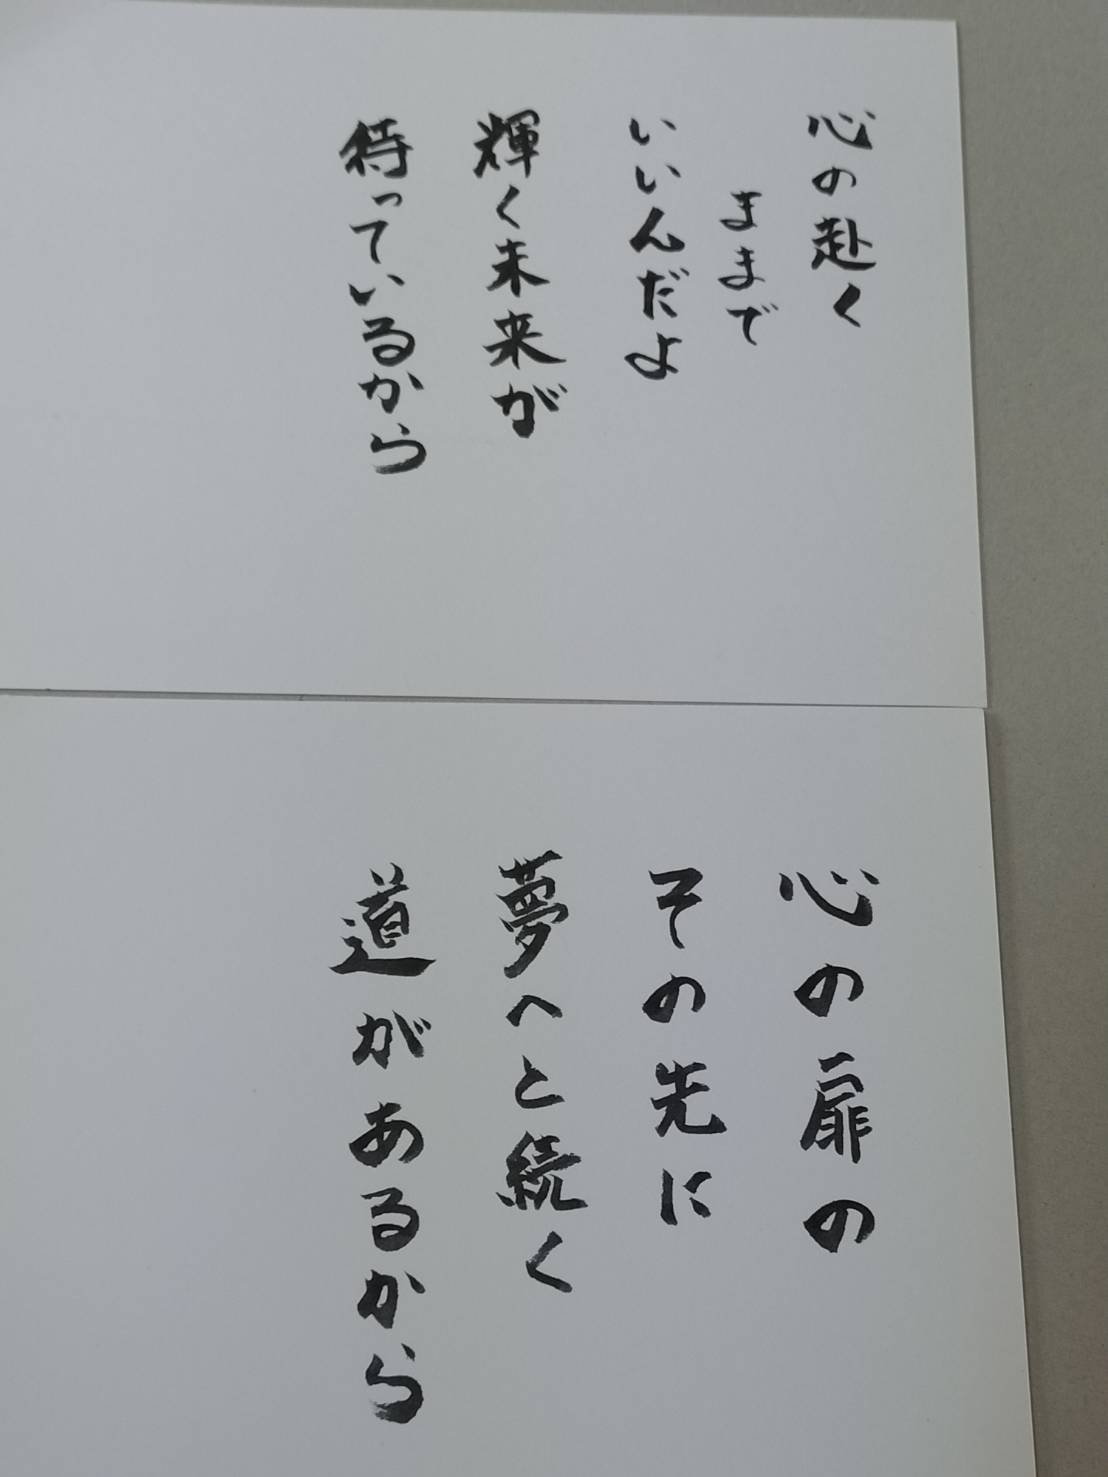 心の赴く
ままで
いいんだよ
輝く未来が
待っているから
心の扉の
その先に
夢へと続く
道があるから